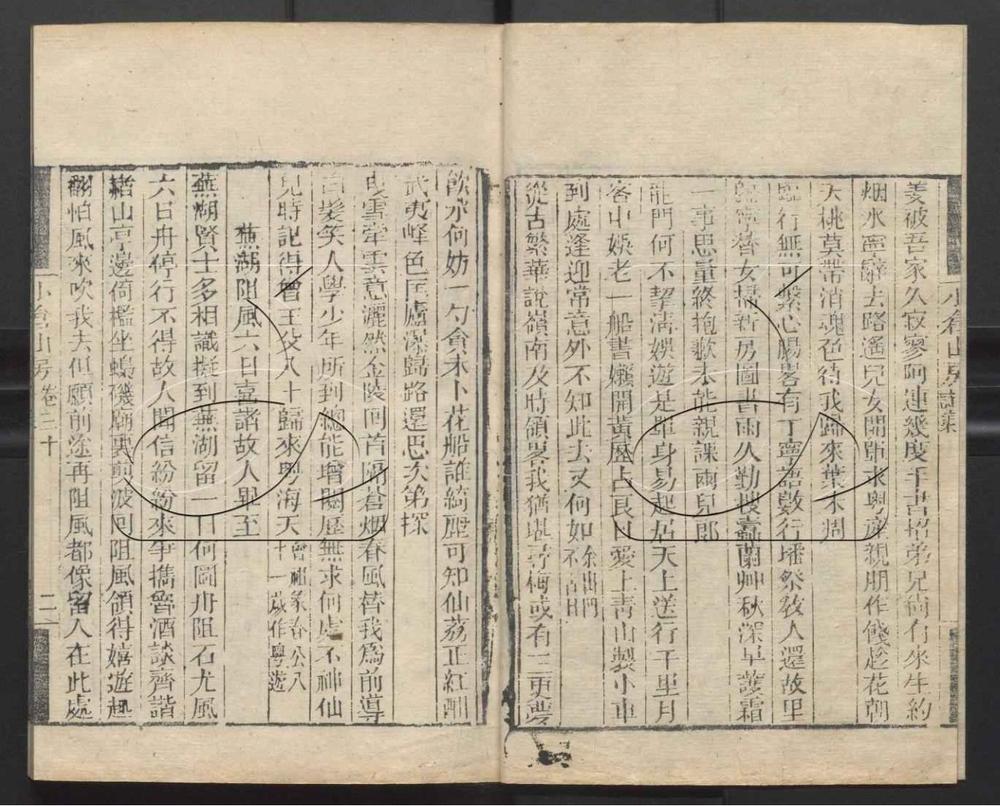 小倉山房詩集
姜被吾家久寂寥阿連幾度千書招弟兄尚有來生約
烟水寧辭去路遙兒女關聽求粵產親朋作餞趁花朝
夭桃莫帶消魂色待我歸來葉未凋
臨行無可繫心腸畧有丁寧語數行墦祭教人還故里
歸寧替女掃新房圖書雨久勤搜蠹蘭艸秋深早護霜
一事思量終抱歉未能親課兩兒郎
龍門何不挈清娛遊是單身易起居天上送行千里月
客中娛老一船書嬾開黃歷占良日愛上青山製小車
到處逢迎常意外不知此去又何如余出門不占日
從古繁華說嶺南及時領畧我猶堪尋梅或有三更夢
飲水何妨一勺貪未卜花船誰綺麗可知仙荔正紅酣
武夷峰色匡廬瀑歸路還思次第探
曳雪牽雲意灑然金陵回首隔蒼烟春風替我為前導
白髮笑人學少年所到總能增閱歷無求何處不神仙
兒時記得曾王父八十歸來粵海天曾祖象春公八十一歲作粵遊
蕪湖阻風六日喜諸故人畢至
蕪湖賢士多相識擬到蕪湖留一日何圖舟阻石尤風
六日舟停行不得故人聞信紛紛來爭攜魯酒談齊諧
赭山亭邊倚檻坐蟂磯廟裏剪波回阻風領得嬉遊趣
翻怕風來吹我去但願前途再阻風都像留人在此處
小倉山房卷三十
二